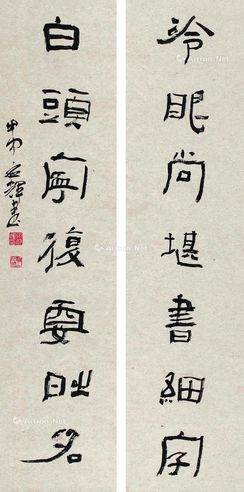 冷眼尚堪書細字
白頭寧復要時名
甲申輝書